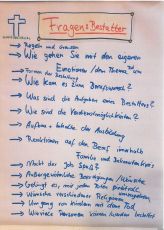 Fragen: Bestatter
→ Regeln und Grenzen
→ Wie gehen Sie mit den eigenen
Emotionen / dem Thema um
→ Formen der Bestattung
→ Wie kam es zum Berufswunsch?
→ Was sind die Aufgaben eines Bestatters?
→ Wie sind die Verdienstmöglichkeiten?
→ Aufbau + Inhalte der Ausbildung
→ Reaktionen auf den Beruf innerhalb
Familie und Bekanntenkreis
→ Macht der Job Spaß?
→ Außergewöhnliche Beerdigungen /
→ Gelingt es, mit jedem Toten
→ Wünsche verschiedener Religionen
→ Umgang von Kindern mit dem Tod
→ Wieviele Personen können bestattet